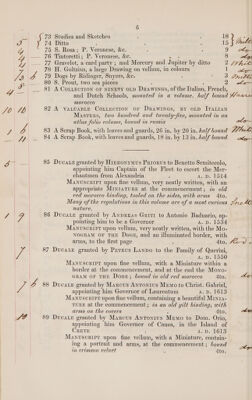 6
73 Studies and Sketches 18
74 Ditto 15
75 S. Rosa; P. Veronese, &c. 9
76 Tintoretti; P. Veronese, &c. 8
77 Gravelot, a card party; and Mercury and Jupiter by ditto 2
78 H. Goltzius, a large Drawing on vellum, in colours 1
79 Dogs by Ridinger, Snyers, &c. 3
80 S. Prout, two sea pieces
81 A COLLECTION OF NINETY OLD DRAWINGS, of the Italian, French,
and Dutch Schools, mounted in a volume. half bound
morocco
82 A VALUABLE COLLECTION OF DRAWINGS, BY OLD ITALIAN
MASTERS, two hundred and twenty-five, mounted in an
atlas folio volume, bound in russia
83 A Scrap Book, with leaves and guards, 26 in. by 20 in. half bound
84 A Scrap Book, with leaves and guards, 18 in. by 13 in. half bound
85 DUCALE granted by HIERONYMUS PRIOLUS to Benetto Semitecolo,
appointing him Captain of the Fleet to escort the Mer-
chantmen from Alexandria A. D. 1514
MANUSCRIPT upon fine vellum, very neatly written, with an
appropriate MINIATURE at the commencement; in old
red morocco binding, tooled on the sides, with arms 4to.
Many of the regulations in this volume are of a most curious
nature.
86 DUCALE granted by ANDREAS GRITI to Antonio Baduario, ap-
pointing him to be a Governor A. D. 1534
MANUSCRIPT upon vellum, very neatly written, with the MO-
NOGRAM OF THE DOGE, and an illuminated border, with
arms, to the first page 4to.
87 DUCALE granted by PETRUS LANDO to the Family of Querini,
A. D. 1550
MANUSCRIPT upon fine vellum, with a Miniature within a
border at the commencement, and at the end the MONO-
GRAM OF THE DOGE; bound in old red morocco 4to.
88 DUCALE granted by MARCUS ANTONIUS MEMO to Christ. Gabriel,
appointing him Governor of Laureatum A. D. 1613
MANUSCRIPT upon fine vellum, containing a beautiful MINIA-
TURE at the commencement; in an old gilt binding, with
arms on the covers 4to.
89 DUCALE granted by MARCUS ANTONIUS MEMO to Dom. Orio,
appointing him Governor of Canea, in the Island of
CRETE A. D. 1613
MANUSCRIPT upon fine vellum, with a Miniature, contain-
ing a portrait and arms, at the commencement; bound
in crimson velvet 4to.